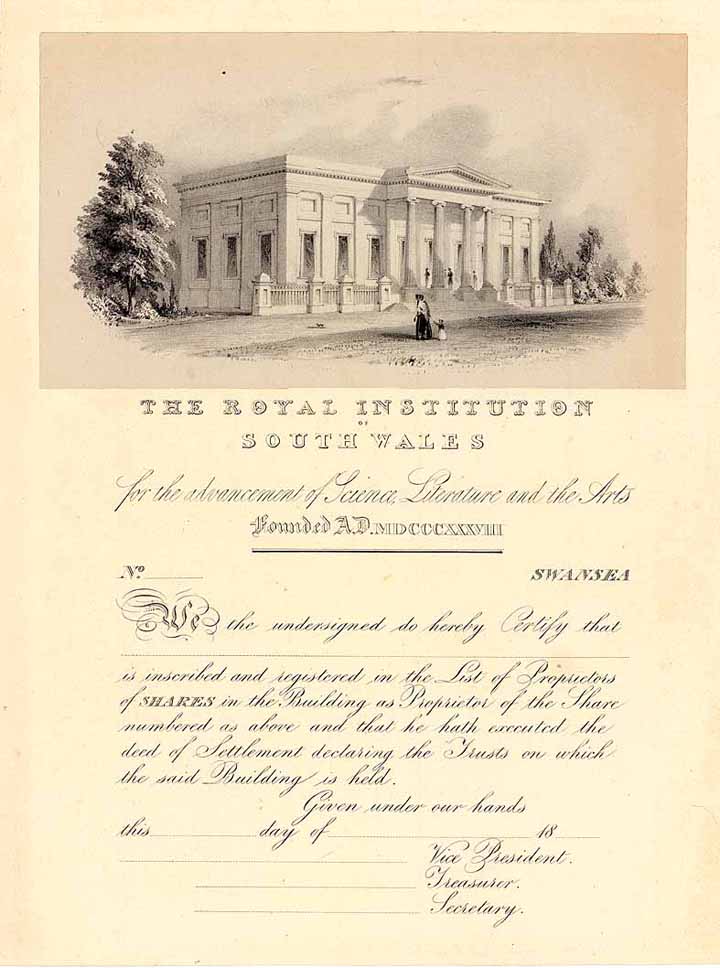 THE ROYAL INSTITUTION
OF
SOUTH WALES
for the advancement of Science, Literature and the Arts
Founded A.D. MDCCCXXXVIII
No. SWANSEA
We the undersigned do hereby Certify that
is inscribed and registered in the List of Proprietors
of SHARES in the Building as Proprietor of the Share
numbered as above and that he hath executed the
deed of Settlement declaring the Trusts on which
the said Building is held.
Given under our hands
this day of 18
Vice President.
Treasurer.
Secretary.